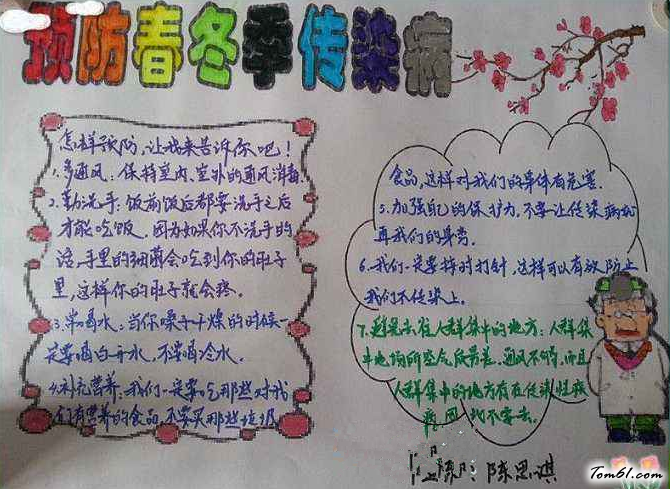 预防春冬季传染病
怎样预防,让我来告诉你吧!
1.多通风:保持室内,室外的通风消毒
2.勤洗手:饭前饭后都要洗手之后
才能吃饭。因为如果你不洗手的
话,手里的细菌会吃到你的肚子
里,这样你的肚子就会疼。
3.常喝水:当你嗓子干燥的时候一
定要喝白开水,不要喝冷水。
4.补充营养:我们一定要吃那些对我
们有营养的食品,不要买那些垃圾
食品,这样对我们的身体有危害.
5.加强自己的保护力,不要让传染病
我们的身旁.
6.我们一定要按时打针,这样可以有效防止
我们不传染上.
7.避免去往人群集中的地方:人群集
中地方的空气质量差,通风不够,而且
人群集中的地方有
不要去。
陈思淇
Tom61.com